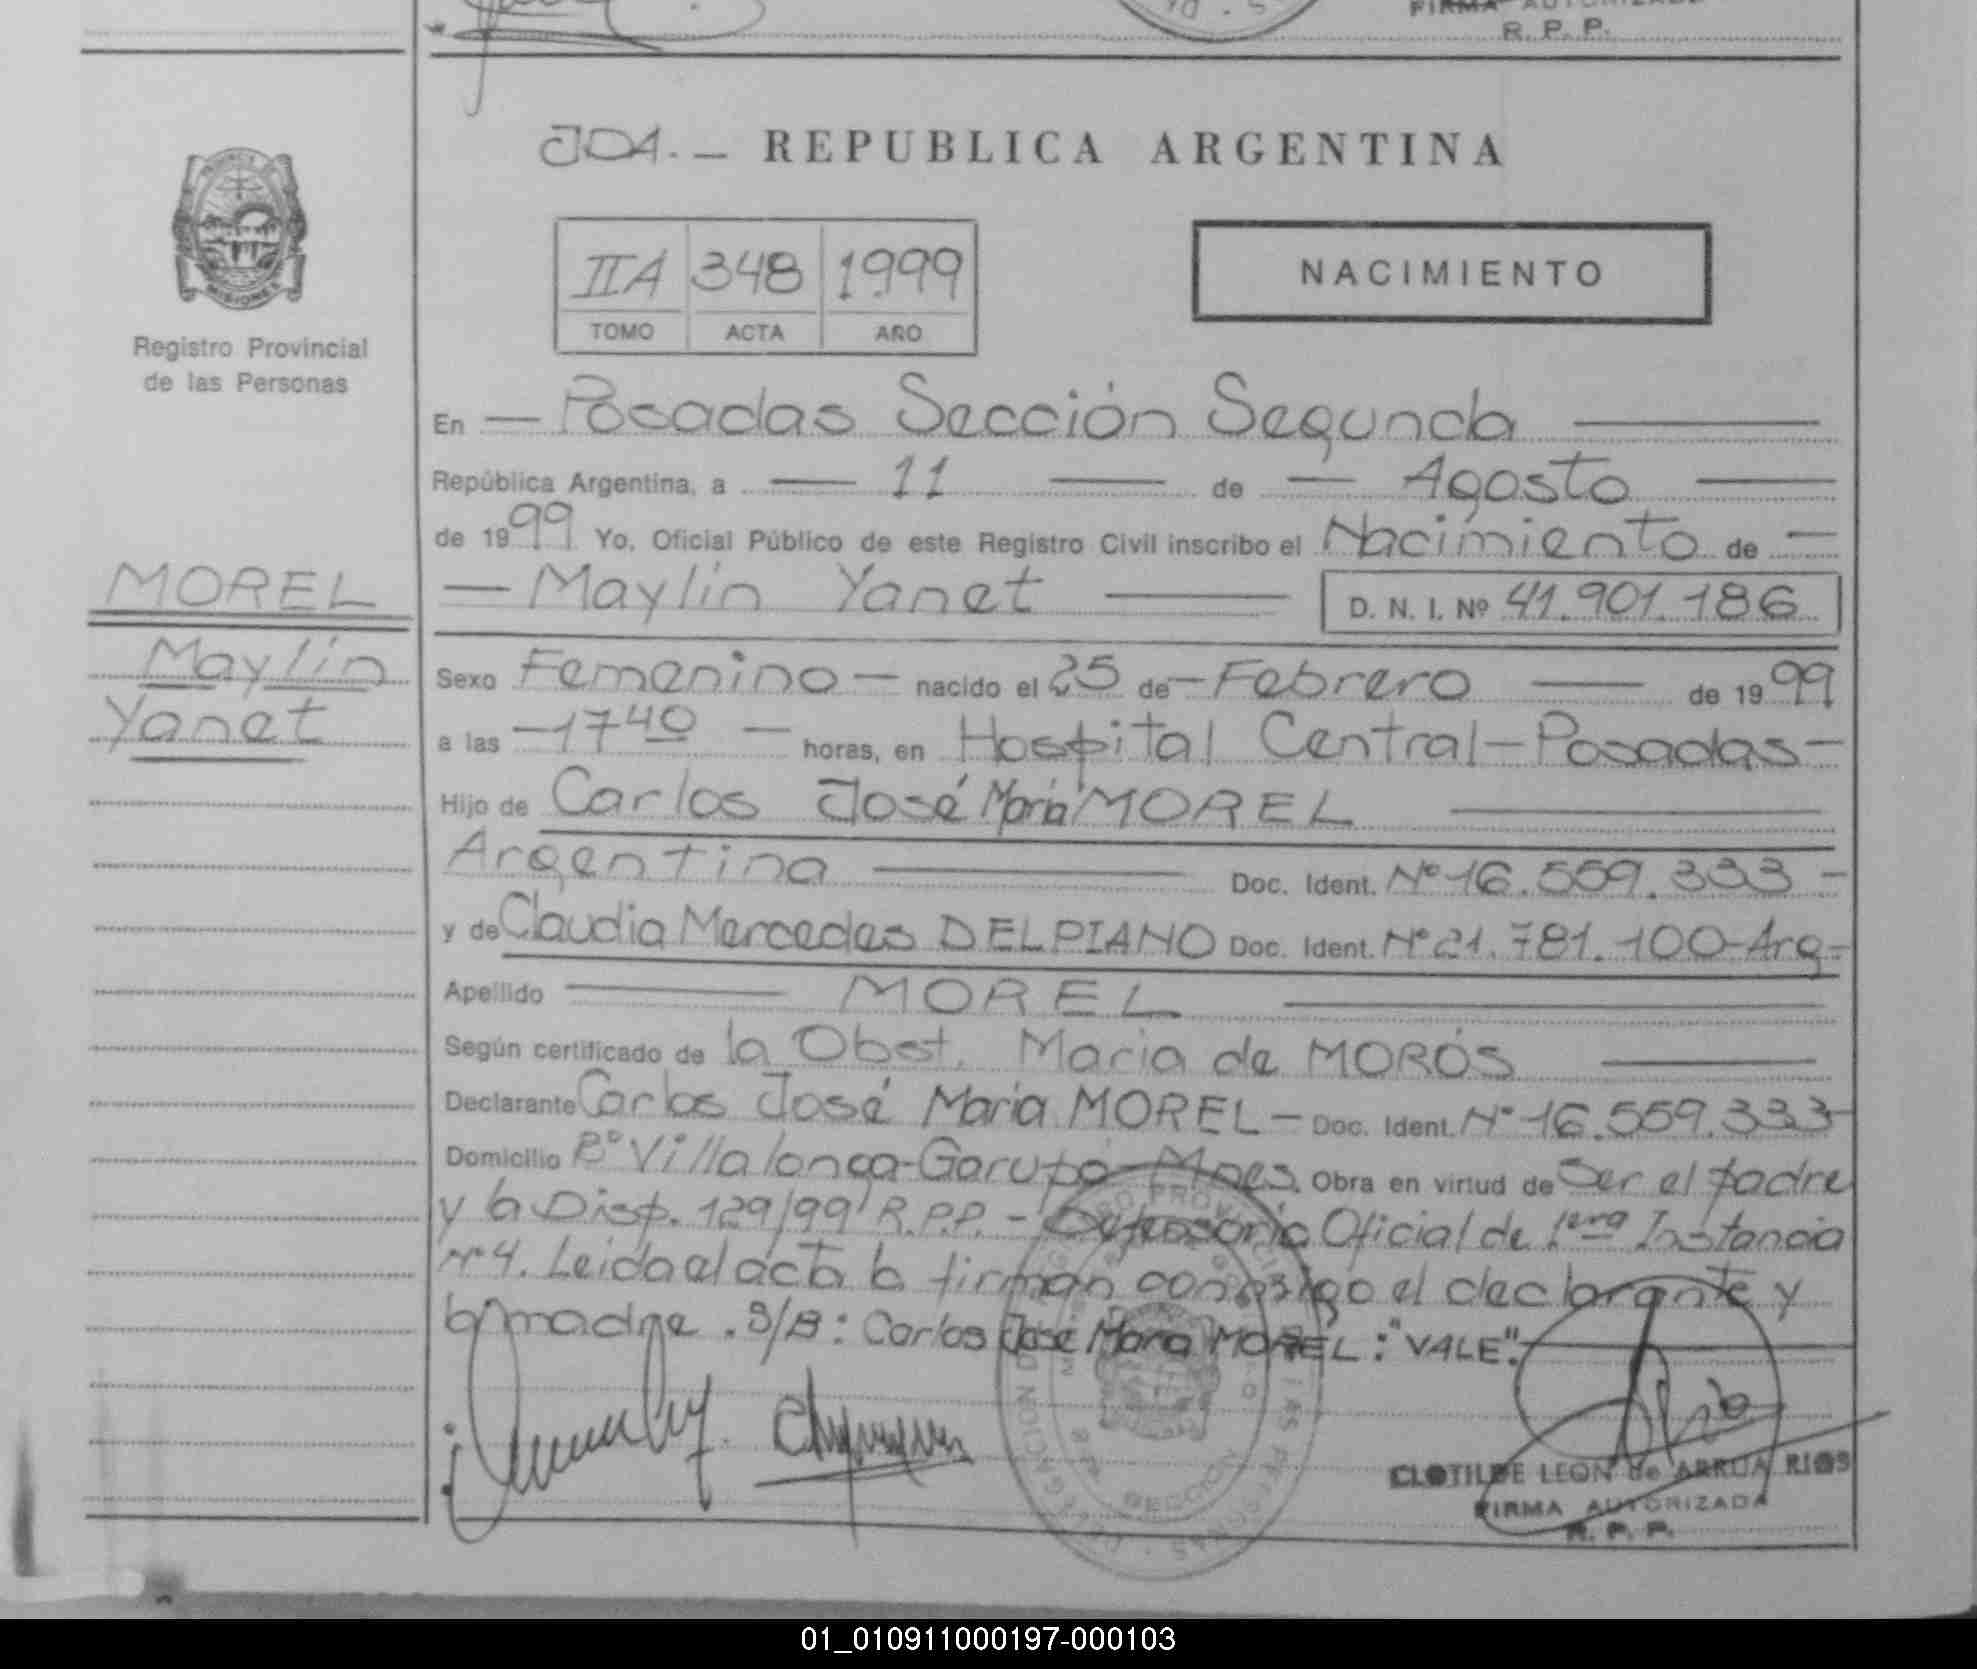 FIRMA AUTORIZADA
R. P. P.
JDA. — REPUBLICA ARGENTINA
MISIONES
Registro Provincial
de las Personas
IIA 348 1999
TOMO ACTA AÑO
NACIMIENTO
En — Posadas Sección Segunda —
República Argentina, a — 11 — de — Agosto —
de 1999 Yo, Oficial Público de este Registro Civil inscribo el Nacimiento de —
— Maylín Yanet — D. N. I. Nº 41.901.186
MOREL
Maylín
Yanet
Sexo Femenino — nacido el 25 de — Febrero — de 1999
a las — 17 40 — horas, en Hospital Central - Posadas -
Hijo de Carlos José María MOREL —
Argentina — Doc. Ident. Nº 16.559.333 -
y de Claudia Mercedes DELPIANO Doc. Ident. Nº 21.781.100 - Arg -
Apellido — MOREL —
Según certificado de la Obst. Maria de MORÓS —
Declarante Carlos José Maria MOREL — Doc. Ident. Nº 16.559.333 -
Domicilio Bº Villalonga - Garupá - Mnes. Obra en virtud de Ser el padre
y la Disp. 129/99 R.P.P. - Defensoría Oficial de 1era Instancia
Nº 4. Leida el acta la firman conmigo el declarante y
la madre. S/B: Carlos José Maria MOREL: "VALE".
CLOTILDE LEON de ARRUA RIOS
FIRMA AUTORIZADA
R. P. P.
01_010911000197-000103